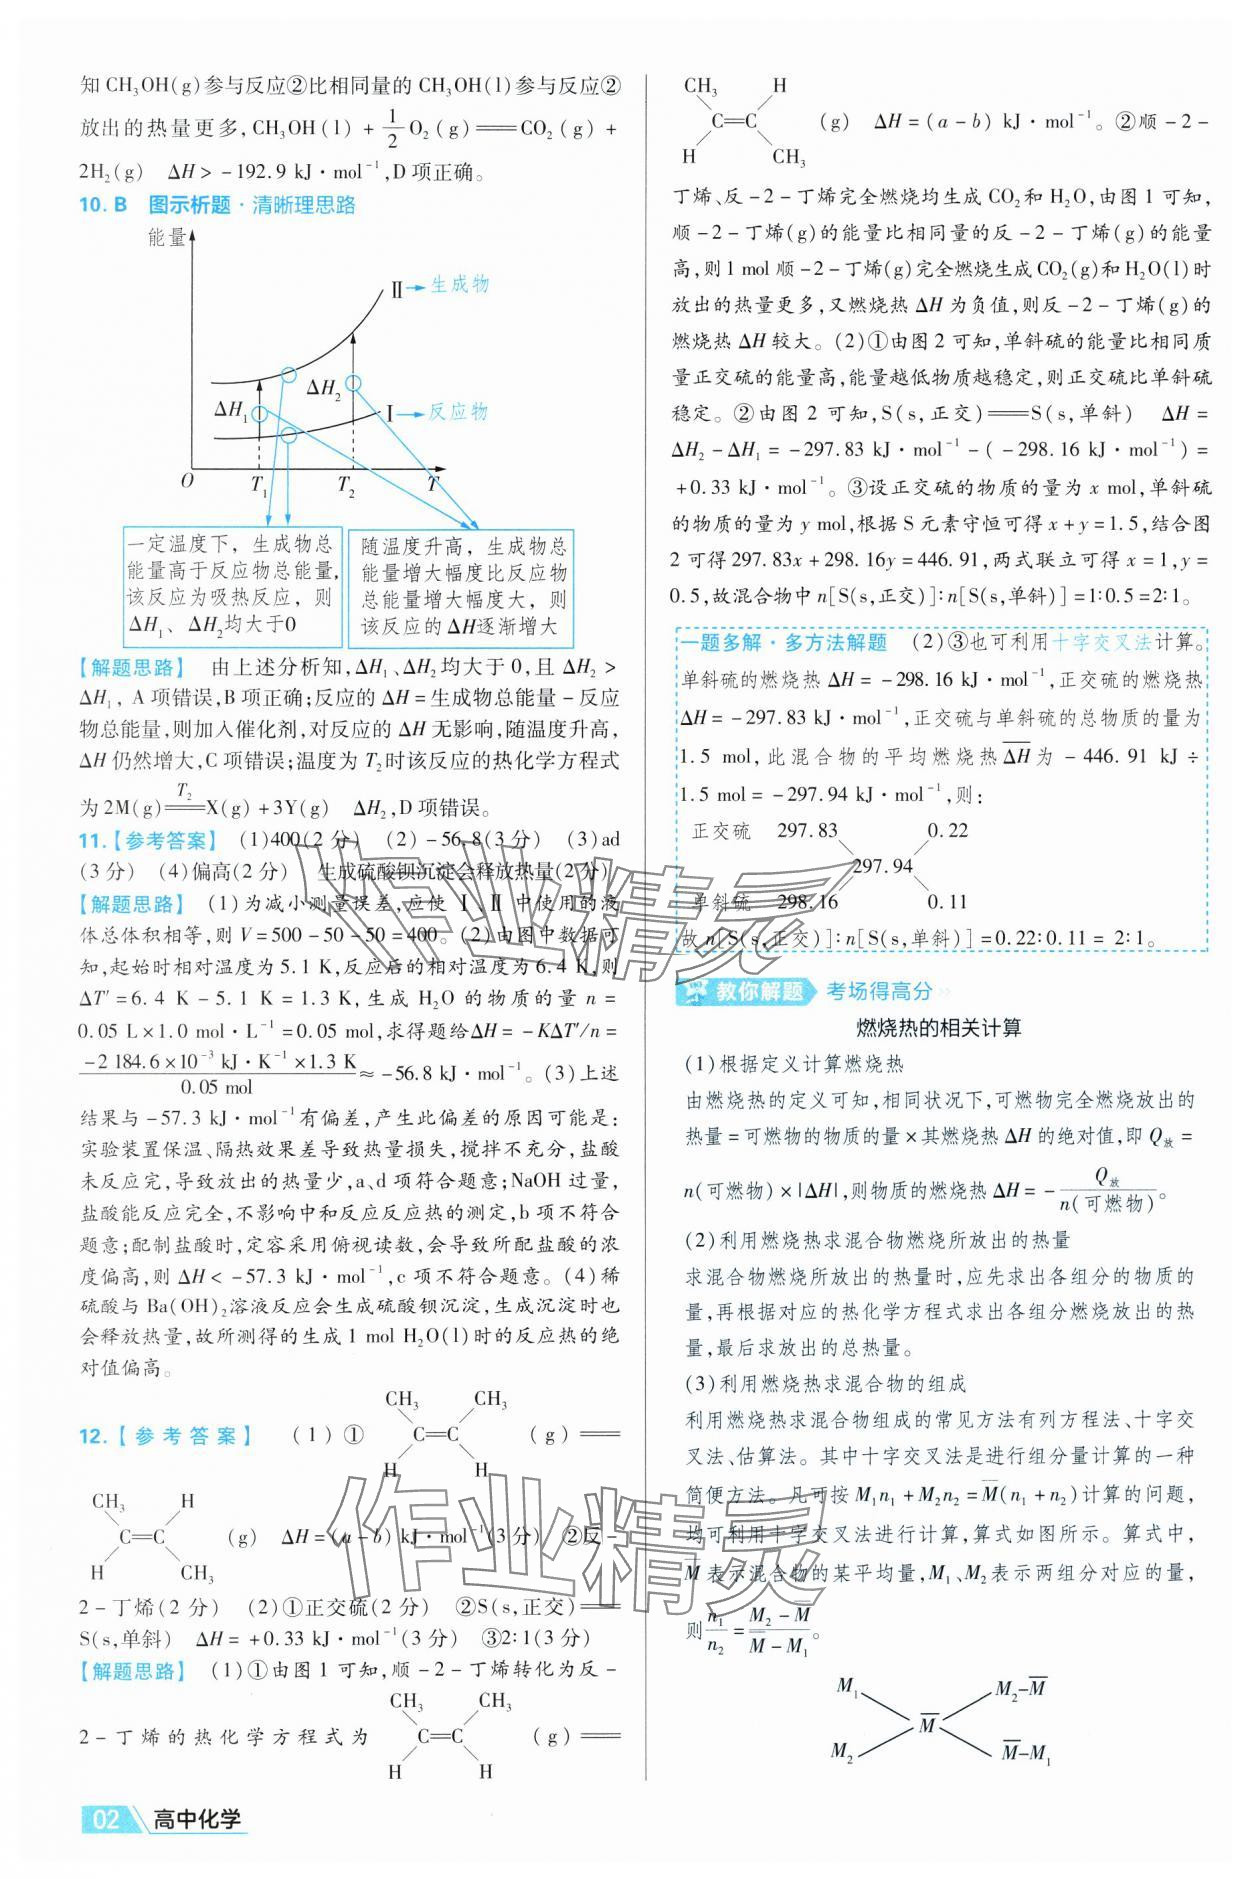 知CH₃OH(g)参与反应②比相同量的CH₃OH(l)参与反应②
放出的热量更多,CH₃OH(l)+1/2O₂(g)══CO₂(g)+
2H₂(g) ΔH>-192.9 kJ·mol⁻¹,D项正确。
10. B 图示析题·清晰理思路
能量
Ⅱ→生成物
ΔH₁
ΔH₂
Ⅰ→反应物
O T₁ T₂ T
一定温度下，生成物总
能量高于反应物总能量,
该反应为吸热反应，则
ΔH₁、ΔH₂均大于0
随温度升高，生成物总
能量增大幅度比反应物
总能量增大幅度大，则
该反应的ΔH逐渐增大
【解题思路】 由上述分析知,ΔH₁、ΔH₂均大于0,且ΔH₂>
ΔH₁, A项错误,B项正确;反应的ΔH=生成物总能量-反应
物总能量,则加入催化剂,对反应的ΔH无影响,随温度升高,
ΔH仍然增大,C项错误;温度为T₂时该反应的热化学方程式
为2M(g)══(T₂)X(g)+3Y(g) ΔH₂,D项错误。
11.【参考答案】 (1)400(2分) (2)-56.8(3分) (3)ad
(3分) (4)偏高(2分) 生成硫酸钡沉淀会释放热量(2分)
【解题思路】 (1)为减小测量误差,应使Ⅰ、Ⅱ中使用的液
体总体积相等,则V=500-50-50=400。(2)由图中数据可
知,起始时相对温度为5.1 K,反应后的相对温度为6.4 K,则
ΔT′=6.4 K-5.1 K=1.3 K,生成H₂O的物质的量n=
0.05 L×1.0 mol·L⁻¹=0.05 mol,求得题给ΔH=-KΔT′/n=
(-2 184.6×10⁻³ kJ·K⁻¹×1.3 K)/(0.05 mol)≈-56.8 kJ·mol⁻¹。(3)上述
结果与-57.3 kJ·mol⁻¹有偏差,产生此偏差的原因可能是:
实验装置保温、隔热效果差导致热量损失,搅拌不充分,盐酸
未反应完,导致放出的热量少,a、d项符合题意;NaOH过量,
盐酸能反应完全,不影响中和反应反应热的测定,b项不符合
题意;配制盐酸时,定容采用俯视读数,会导致所配盐酸的浓
度偏高,则ΔH<-57.3 kJ·mol⁻¹,c项不符合题意。(4)稀
硫酸与Ba(OH)₂溶液反应会生成硫酸钡沉淀,生成沉淀时也
会释放热量,故所测得的生成1 mol H₂O(l)时的反应热的绝
对值偏高。
CH₃ CH₃
12.【参考答案】 (1)① C═C (g)══
H H
CH₃ H
C═C (g) ΔH=(a-b) kJ·mol⁻¹(3分) ②反-
H CH₃
2-丁烯(2分) (2)①正交硫(2分) ②S(s,正交)══
S(s,单斜) ΔH=+0.33 kJ·mol⁻¹(3分) ③2∶1(3分)
【解题思路】 (1)①由图1可知,顺-2-丁烯转化为反-
CH₃ CH₃
2-丁烯的热化学方程式为 C═C (g)══
H H
02 高中化学
CH₃ H
C═C (g) ΔH=(a-b) kJ·mol⁻¹。②顺-2-
H CH₃
丁烯、反-2-丁烯完全燃烧均生成CO₂和H₂O,由图1可知,
顺-2-丁烯(g)的能量比相同量的反-2-丁烯(g)的能量
高,则1 mol顺-2-丁烯(g)完全燃烧生成CO₂(g)和H₂O(l)时
放出的热量更多,又燃烧热ΔH为负值,则反-2-丁烯(g)的
燃烧热ΔH较大。(2)①由图2可知,单斜硫的能量比相同质
量正交硫的能量高,能量越低物质越稳定,则正交硫比单斜硫
稳定。②由图2可知,S(s,正交)══S(s,单斜) ΔH=
ΔH₂-ΔH₁=-297.83 kJ·mol⁻¹-(-298.16 kJ·mol⁻¹)=
+0.33 kJ·mol⁻¹。③设正交硫的物质的量为x mol,单斜硫
的物质的量为y mol,根据S元素守恒可得x+y=1.5,结合图
2可得297.83x+298.16y=446.91,两式联立可得x=1,y=
0.5,故混合物中n[S(s,正交)]∶n[S(s,单斜)]=1∶0.5=2∶1。
一题多解·多方法解题 (2)③也可利用十字交叉法计算。
单斜硫的燃烧热ΔH=-298.16 kJ·mol⁻¹,正交硫的燃烧热
ΔH=-297.83 kJ·mol⁻¹,正交硫与单斜硫的总物质的量为
1.5 mol,此混合物的平均燃烧热ΔH̅为-446.91 kJ÷
1.5 mol=-297.94 kJ·mol⁻¹,则:
正交硫 297.83 0.22
297.94
单斜硫 298.16 0.11
故n[S(s,正交)]∶n[S(s,单斜)]=0.22∶0.11=2∶1。
教你解题 考场得高分
燃烧热的相关计算
(1)根据定义计算燃烧热
由燃烧热的定义可知,相同状况下,可燃物完全燃烧放出的
热量=可燃物的物质的量×其燃烧热ΔH的绝对值,即Q放=
n(可燃物)×|ΔH|,则物质的燃烧热ΔH=-Q放/n(可燃物)。
(2)利用燃烧热求混合物燃烧所放出的热量
求混合物燃烧所放出的热量时,应先求出各组分的物质的
量,再根据对应的热化学方程式求出各组分燃烧放出的热
量,最后求放出的总热量。
(3)利用燃烧热求混合物的组成
利用燃烧热求混合物组成的常见方法有列方程法、十字交
叉法、估算法。其中十字交叉法是进行组分量计算的一种
简便方法。凡可按M₁n₁+M₂n₂=M̅(n₁+n₂)计算的问题,
均可利用十字交叉法进行计算,算式如图所示。算式中,
M̅表示混合物的某平均量,M₁、M₂表示两组分对应的量,
则n₁/n₂=(M₂-M̅)/(M̅-M₁)。
M₁ M₂-M̅
M̅
M₂ M̅-M₁
作业精灵
作业精灵